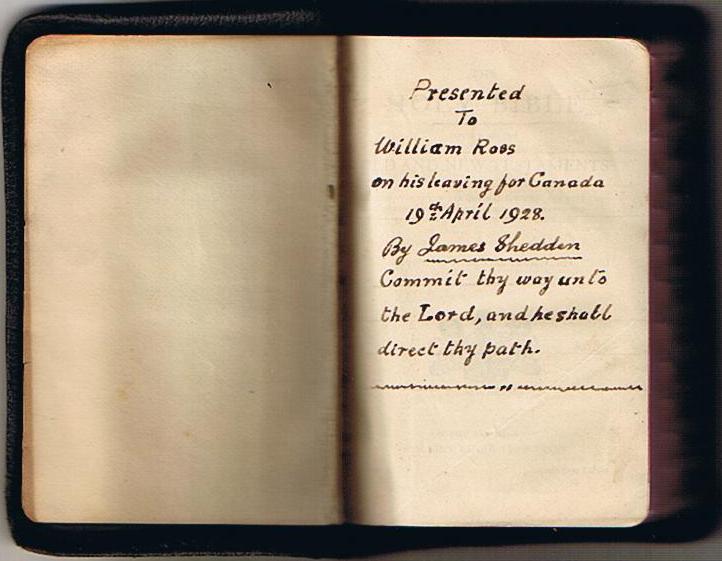 Presented
To
William Ross
on his leaving for Canada
19th April 1928.
By James Shedden
Commit thy way unto
the Lord, and he shall
direct thy path.